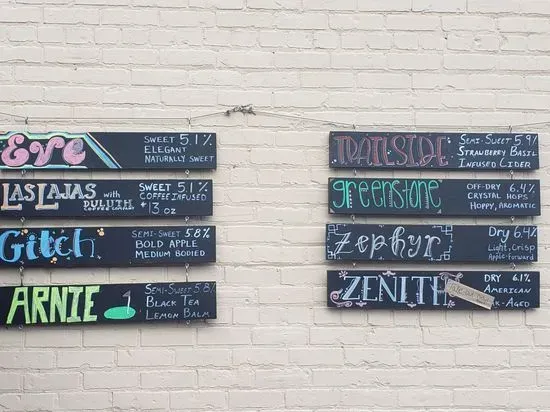 Eve
SWEET 5.1%
ELEGANT
NATURALLY SWEET
LAS LAJAS with
DULUTH
COFFEE COMPANY
SWEET 5.1%
COFFEE INFUSED
13 oz
Gitch
SEMI-SWEET 5.8%
BOLD APPLE
MEDIUM BODIED
ARNIE
SEMI-SWEET 5.8%
BLACK TEA
LEMON BALM
TRAILSIDE
SEMI-SWEET 5.9%
STRAWBERRY BASIL
INFUSED CIDER
greenstone
OFF-DRY 6.4%
CRYSTAL HOPS
HOPPY, AROMATIC
Zephyr
Dry 6.4%
Light, Crisp
Apple-forward
ZENITH
DRY 6.1%
AMERICAN
AK-AGED